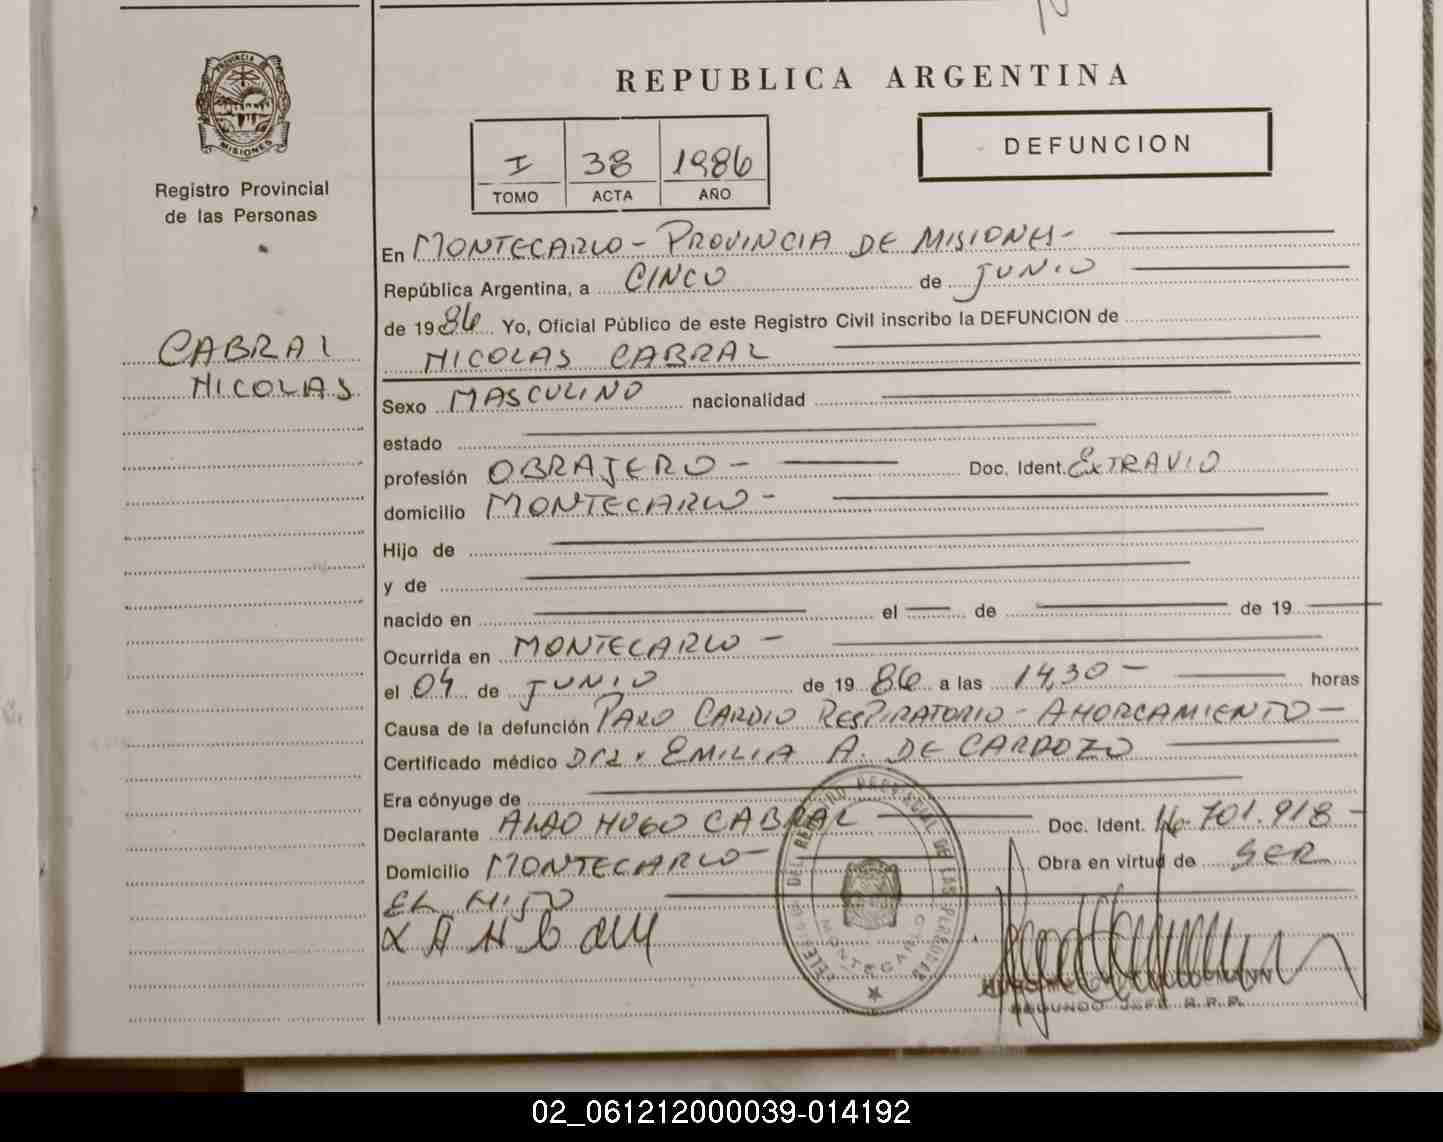 PROVINCIA DE
MISIONES
Registro Provincial
de las Personas
CABRAL
NICOLAS
REPUBLICA ARGENTINA
I 38 1986
TOMO ACTA AÑO
DEFUNCION
En MONTECARLO - PROVINCIA DE MISIONES -
República Argentina, a CINCO de JUNIO
de 1986 Yo, Oficial Público de este Registro Civil inscribo la DEFUNCION de
NICOLAS CABRAL
Sexo MASCULINO nacionalidad
estado
profesión OBRAJERO - Doc. Ident. EXTRAVIO
domicilio MONTECARLO -
Hijo de
y de
nacido en el de de 19
Ocurrida en MONTECARLO -
el 04 de JUNIO de 1986 a las 14,30 - horas
Causa de la defunción PARO CARDIO RESPIRATORIO - AHORCAMIENTO -
Certificado médico DRA. EMILIA A. DE CARDOZO
Era cónyuge de
Declarante ALDO HUGO CABRAL Doc. Ident. 16.701.918 -
Domicilio MONTECARLO - Obra en virtud de SER
EL HIJO
DEL REGISTRO PROVINCIAL DE LAS PERSONAS
MONTECARLO
SEGUNDO JEFE R.P.P.
02_061212000039-014192